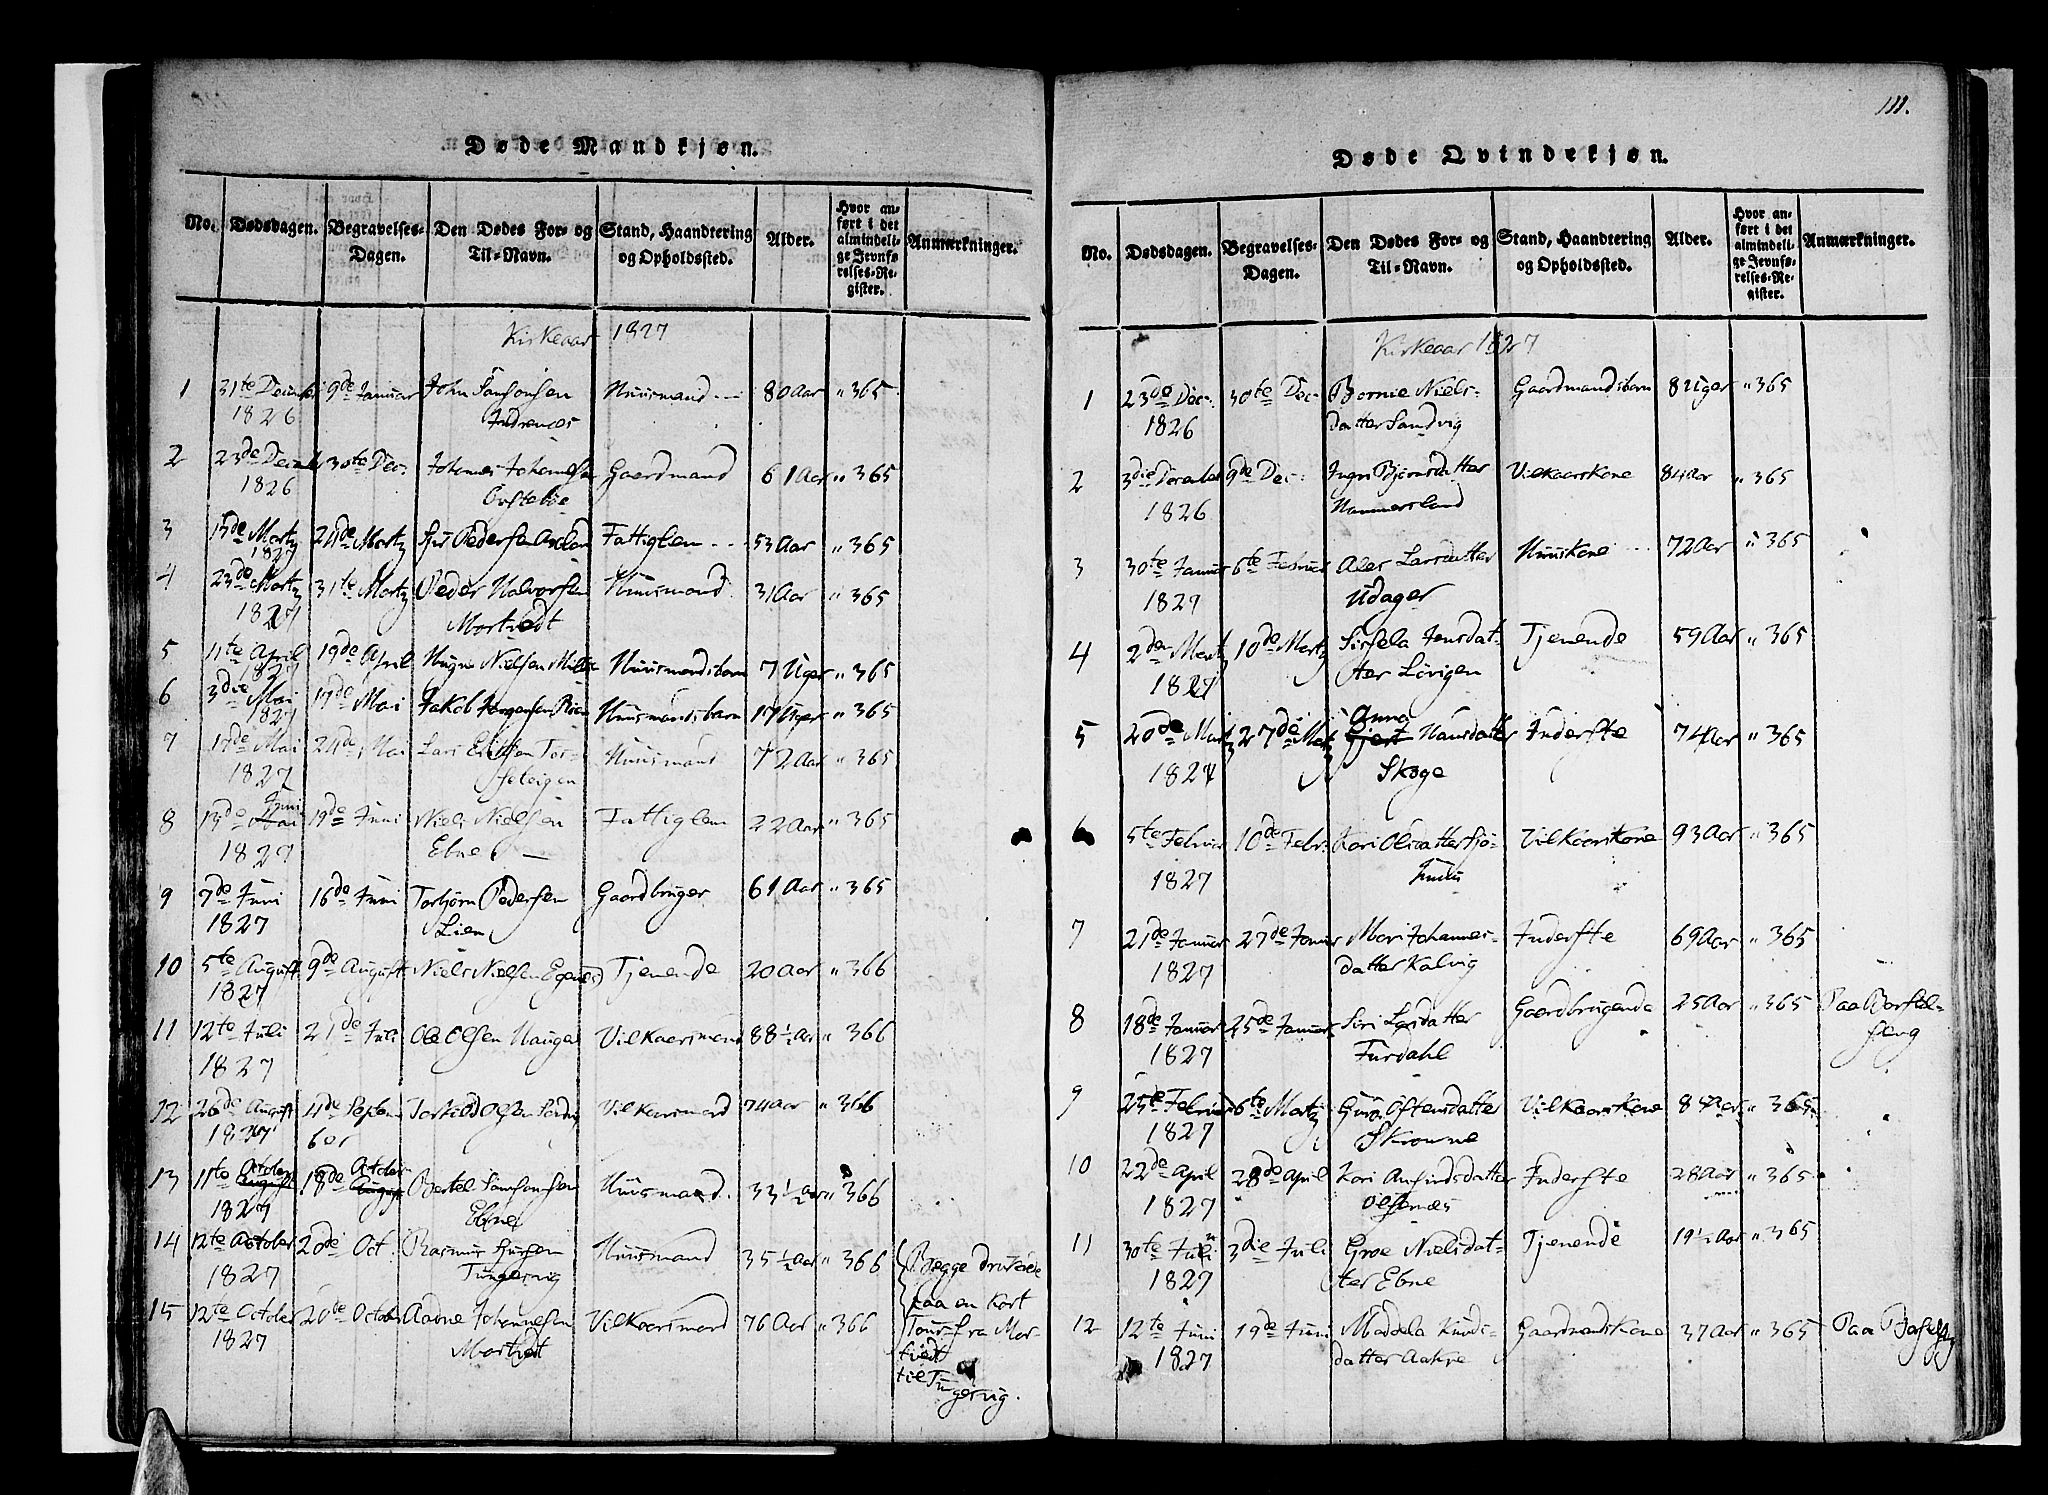 111.
Døde Mandkjøn.
No. Dødsdagen. Begravelses-Dagen. Den Dødes For- og Til-Navn. Stand, Haandtering og Opholdssted. Alder. Hvor anført i det almindelige Jevnførelses-Register. Anmærkninger.
Kirkeaar 1827
1 31te December 9de Januar John Samsonsen Huusmand 80 Aar " 365
1826
2 23de December 30te Dec: Johannes Johannesen Gaardmand 61 Aar " 365
1826
3 13de Martz 24de Martz Pedersen Fattiglem 53 Aar " 365
1827
4 23de Martz 31te Martz Peder Halvorsen Huusmand 31 Aar " 365
1827 Mortvedt
5 11te April 19de April Nielsen Huusmandsbarn 7 Uger " 365
1827
6 3die Mai 17de Mai Jakob Huusmandsbarn 17 Uger " 365
1827
7 17de Mai 24de Mai Lars Huusmand 72 Aar " 365
1827
8 13de Juni 19de Juni Niels Nielsen Fattiglem 22 Aar " 365
1827 Ebne
9 7de Juni 16de Juni Torbjørn Pedersen Gaardbruger 61 Aar " 365
1827 Lien
10 5te August 9de August Niels Nielsen Tjenende 20 Aar " 366
1827
11 12te Juli 21de Juli Ole Olsen Hauge Vilkaarsmand 88 1/2 Aar " 366
1827
12 26de August Septem Olsen Vilkaarsmand 74 Aar " 366
1827 ber
13 11te October 18de October Bertel Samsonsen Huusmand. 33 1/2 Aar " 366
1827 Ebne
14 12te October 20de Oct. Rasmus Huusmand 35 1/2 Aar " 366 Begge druknede
1827 Tungesvig paa en kort
15 12te October 20de October Aadne Johannesen Vilkaarsmand 76 Aar " 366 Tour fra Mor-
1827 Mortvedt tvedt
til Tungesvig.
Døde Qvindekjøn.
No. Dødsdagen. Begravelses-Dagen. Den Dødes For- og Til-Navn. Stand, Haandtering og Opholdssted. Alder. Hvor anført i det almindelige Jevnførelses-Register. Anmærkninger.
Kirkeaar 1827
1 23de Dec: 30te Dec: Niels- Gaardmandsbarn 8 Uger " 365
1826 datter Sandvig
2 3die December 9de Dec: Bjørnsdatter Vilkaarskone 84 Aar " 365
1826 Hammersland
3 30te Januar 6te Februar Larsdatter Huuskone 72 Aar " 365
1827 Udager
4 2den Martz 10de Martz Jensdat- Tjenende 59 Aar " 365
1827 ter
5 20de Martz 27de Martz Anna Hansdatter Inderste 74 Aar " 365
1827 Skoge
6 5te Februar 10de Febr: Kari Vilkaarskone 93 Aar " 365
1827
7 21de Januar 27de Januar Mari Johannes- Inderste 69 Aar " 365
1827 datter Kalvig
8 18de Januar 25de Januar Siri Gaardbrugende 25 Aar " 365 Paa Barsel-
1827 Furdahl seng
9 25de Februar 6te Martz Guro Vilkaarskone 84 Aar " 365
1827
10 22de April 28de April Kari Inderste 28 Aar " 365
1827
11 30te 3die Juli Groe Nielsdat- Tjenende 19 1/2 Aar " 365
1827 ter Ebne
12 12te Juni 19de Juni Knuds- Gaardmandskone 37 Aar " 365 Paa
1827 datter Aakre